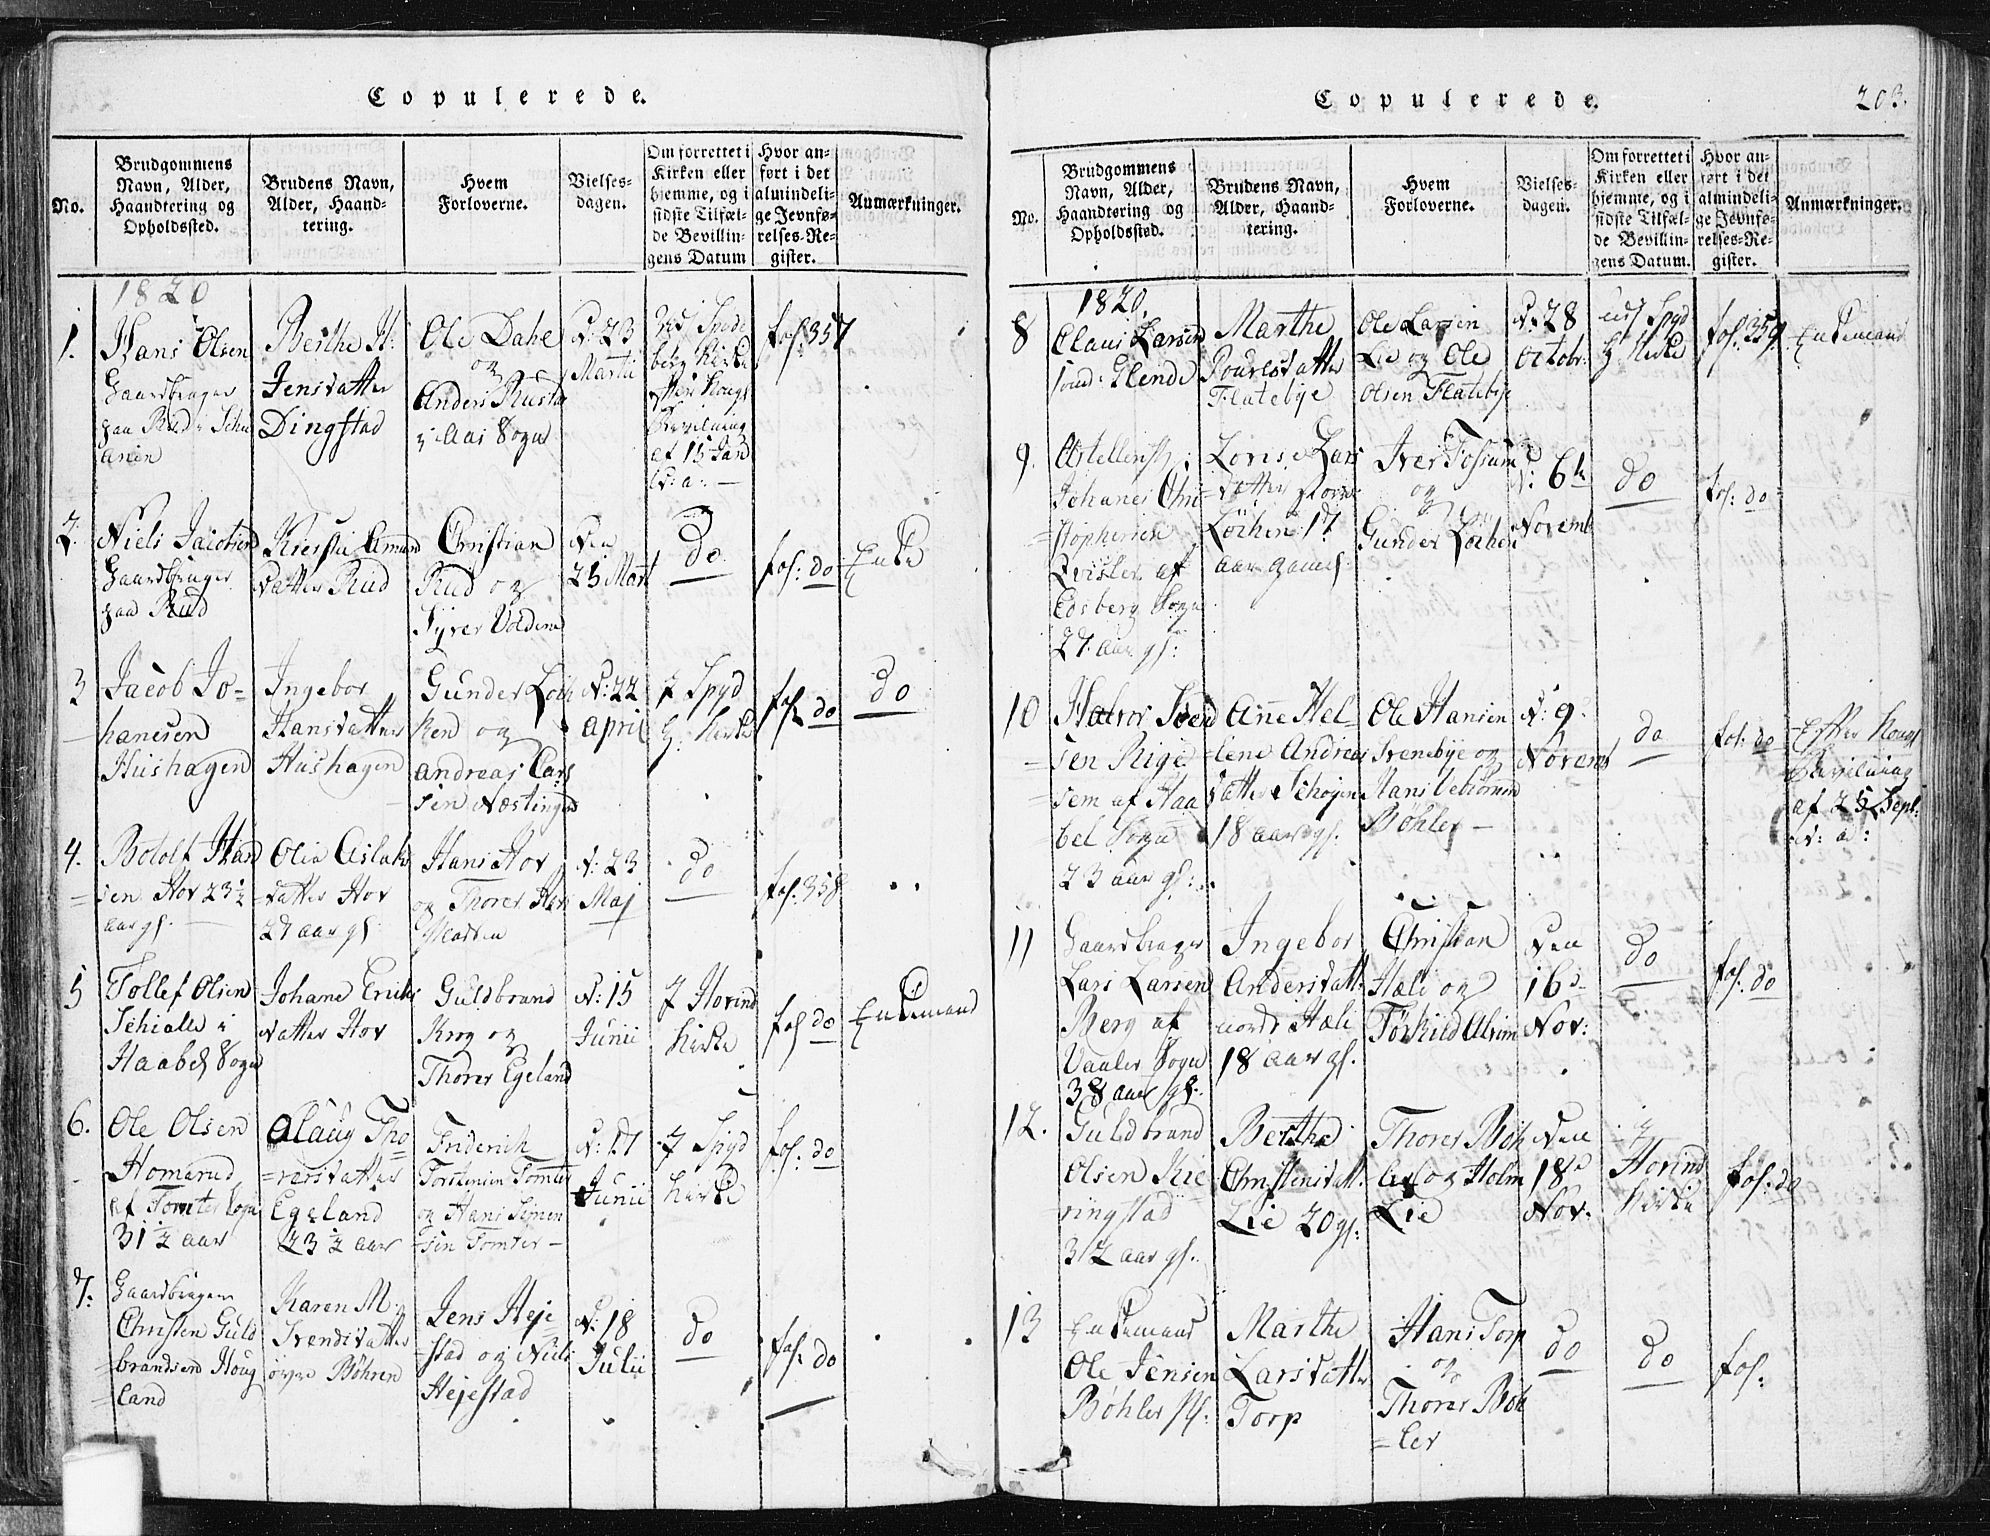 Copulerede.
No.
Brudgommens
Navn, Alder,
Haandtering og
Opholdssted.
Brudens Navn,
Alder, Haand-
tering.
Hvem
Forloverne.
Vielses-
dagen.
Om forrettet i
Kirken eller
hjemme, og i
sidste Tilfæl-
de Bevillin-
gens Datum
Hvor an-
ført i det
almindeli-
ge Jevnfø-
relses-Re-
gister.
Anmærkninger.
1820
1.
Hans Olsen
Gaardbruger
paa Rud i
Berthe
Jensdatter
Dingstad
Ole Dahl
og
Anders Rustad
i Aas Sogn
D. 23
Martii
Spyde
berg Kirke
efter Kongl
Bevilning
af 15 Jan
fol: 357
2.
Niels Jacobsen
Gaardbruger
paa Rud
Kiersti Amund
datter Rud
Christian
Rud og
Syver Voldene
Den
25 Mart
do
fol: do
Enke
3
Jacob Jo-
hanesen
Hushagen
Ingebor
Hansdatter
Hushagen
Gunder Løch
ken og
Andreas Lars
sen Næstingen
D: 22
april
I Spyd
b: Kirke
fol do
do
4.
Botolf Han
sen Hov 23½
aar gl.
Olia Aslaks
datter Hov
27 aar gl
Hans Hov
og Thorer Hov
D: 23
Maj
do
fol: 358
5
Tollef Olsen
Schialle i
Haabøl Sogn
Johane Eriks
datter Hov
Guldbrand
Krog og
Thorer Egeland
D: 15
Junii
I Hovind
kirke
fol do
Enkemand
6.
Ole Olsen
Homerud
af Tomter Sogn
31½ aar
Olaug Tho
=rersdatter
Egeland
23½ aar
Friderich
Torstensen Tomter
og Hans Simen
=sen Tomter
D: 17
Junii
I Spyd
kirke
fol: do
7:
Gaardbrugeren
Christen Guld
=brandsen Houg
=land
Karen M:
Svendsdatter
øvre Bøhren
Jens Heje
=stad og Niels
Hejestad
D: 18
Julii
do
fol: do
Copulerede.
203.
No.
Brudgommens
Navn, Alder,
Haandtering og
Opholdssted.
Brudens Navn,
Alder, Haand-
tering.
Hvem
Forloverne.
Vielses-
dagen.
Om forrettet i
Kirken eller
hjemme, og i
sidste Tilfæl-
de Bevillin-
gens Datum.
Hvor an-
ført i det
almindeli-
ge Jevnfø-
relses-Re-
gister.
Anmærkninger.
1820.
8
Claus Larsen
Glende
Marthe
Poulsdatter
Flatebye
Ole Larsen
Lie og Ole
Olsen Flatebye
D: 28
Octobr:
udi Spyd
b Kirke
fol: 359.
Enkemand
9.
Johanes Chri
=stophersen
Qvisler af
Edsberg Sogn
27 aar gl:
Lovise Lars
=datter store
Løchen 17
aar gamel
Iver Fossum
og
Gunder Løchen
D: 6te
Novemb
do
fol: do
10
Halvor Svend
=sen Rige
=sem af Haa
=bel Sogn
23 aar gl:
Anne Hel
=lene Andreas
datter Schojen
18 aar gl.
Ole Hansen
Svenebye og
Hans
Bøhler
D: 9
Novemb
do
fol: do
Efter Kongl
Bevilning
af 25 Sept:
d: a:
11
Gaardbruger
Lars Larsen
Berg af
Vaaler Sogn
38 aar gl.
Ingebor
Andersdatt:
nordr Hæli
18 aar gl.
Christian
Hæli og
Tørkild Alvim
Den
16d
Nov:
do
fol: do
12.
Guldbrand
Olsen Kie
=ringstad
32 aar gl.
Berthe
Christensdatt:
Lie 20 gl:
Thorer Bøh
ler og Holm
Lie
Den
18d
Nov:
i
Hovind
kirke
fol: do
13
Enkemand
Ole Jensen
Bøhler
Marthe
Larsdatter
Torp
Hans Torp
og
Thorer Bøh
=ler
do
do
fol: